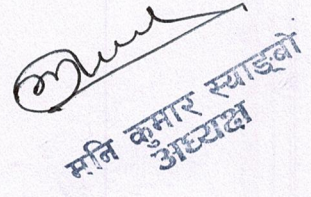 मनि कुमार स्याङ्बो
अध्यक्ष